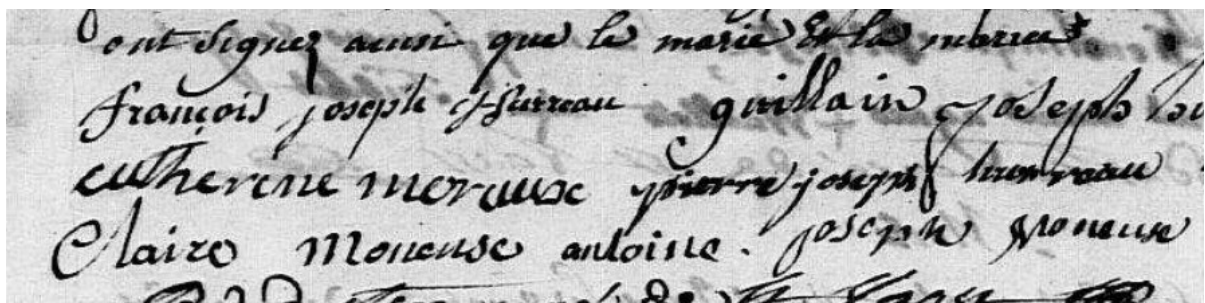 ont signez ainsi que le marié Et la mariee
françois joseph hurreau guillain joseph hu
catherine moreaux pierre joseph hurreau
Claire Moneuse antoine . joseph Moneuse